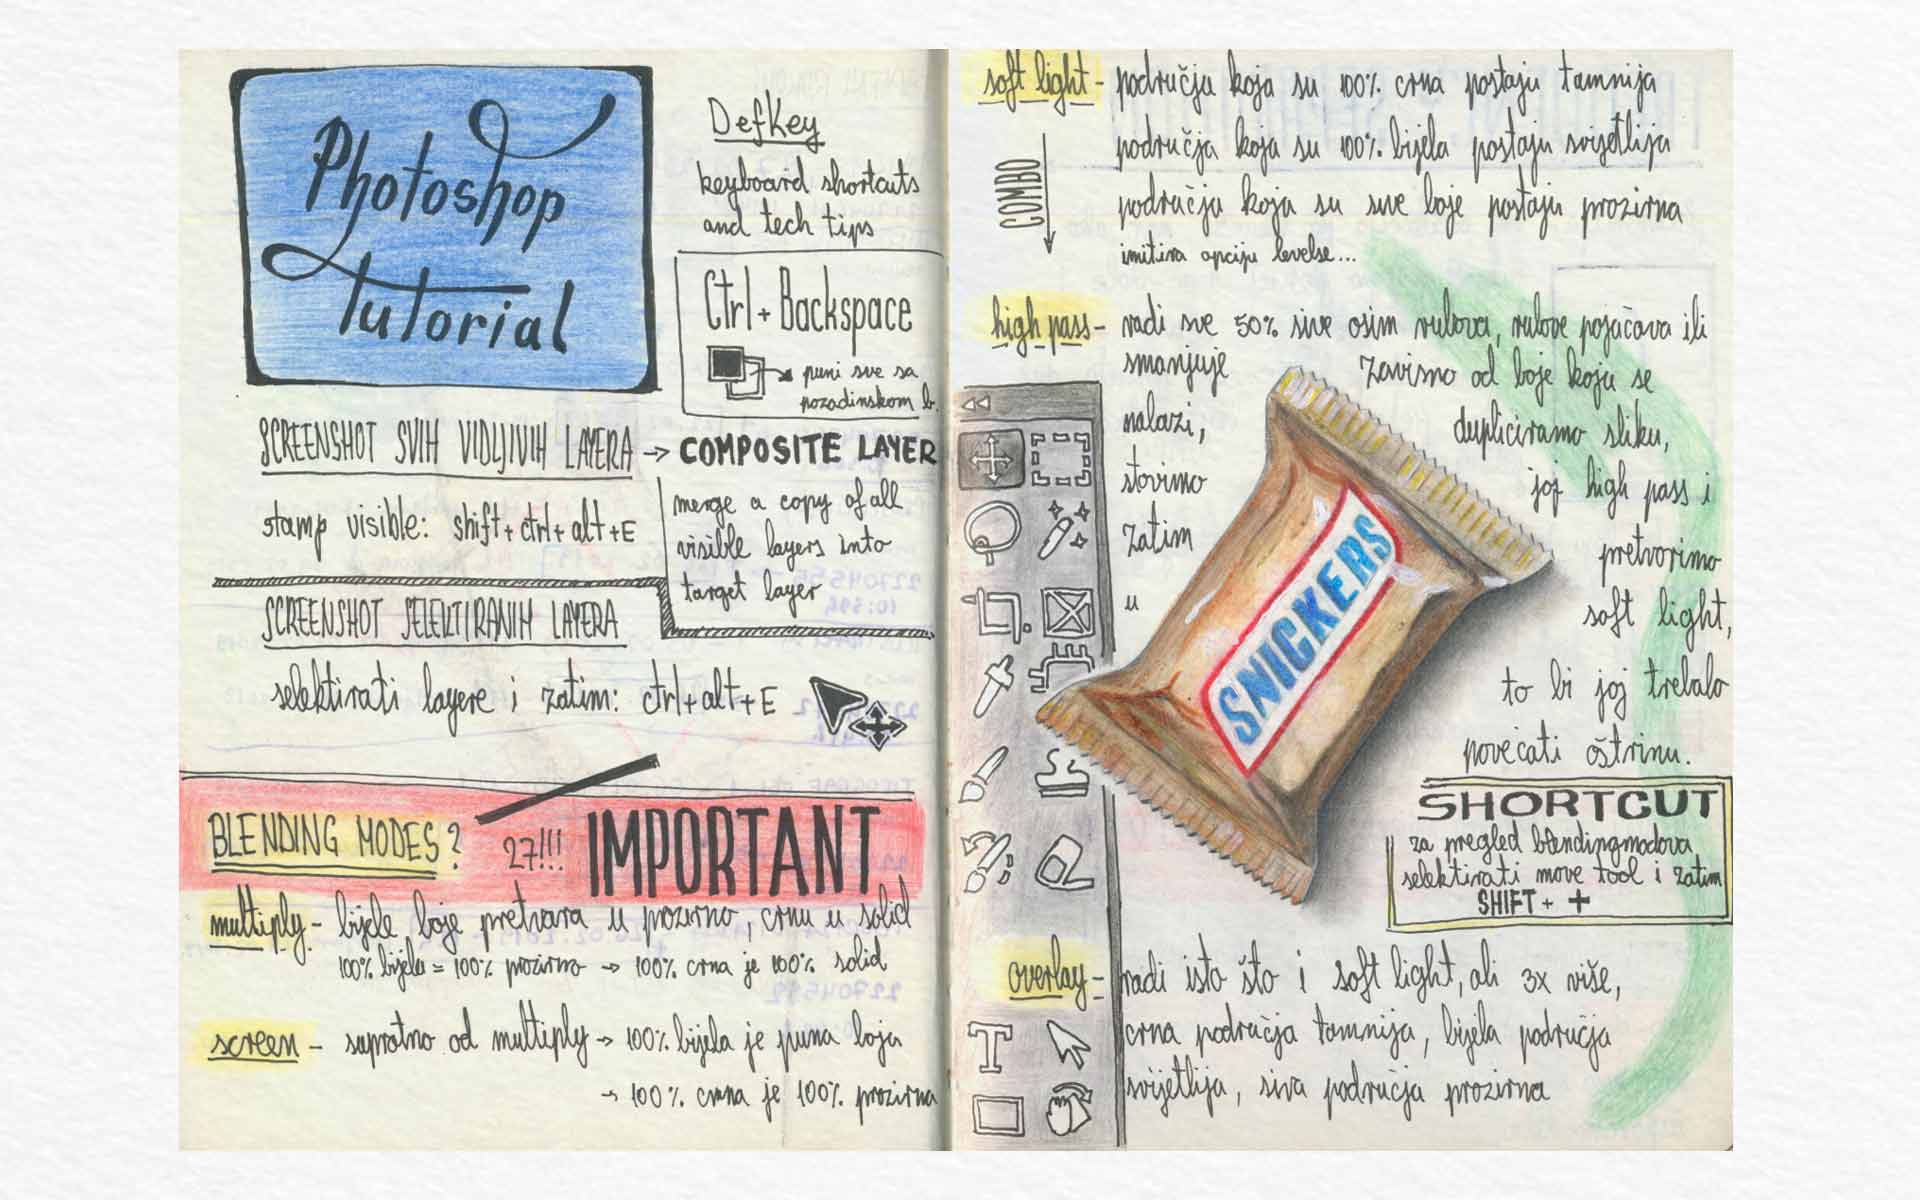 Photoshop
tutorial
DefKey
keyboard shortcuts
and tech tips
Ctrl + Backspace
puni sve sa
pozadinskom b.
SCREENSHOT SVIH VIDLJIVIH LAYERA → COMPOSITE LAYER
stamp visible: shift + ctrl + alt + E
merge a copy of all
visible layers into
target layer
SCREENSHOT SELEKTIRANIH LAYERA
selektirati layere i zatim: ctrl + alt + E
BLENDING MODES? 27!!! IMPORTANT
multiply - bijele boje pretvara u prozirno, crnu u solid
100% bijela = 100% prozirno → 100% crna je 100% solid
screen - suprotno od multiply → 100% bijela je puna boja
→ 100% crna je 100% prozirna
soft light - područja koja su 100% crna postaju tamnija
područja koja su 100% bijela postaju svijetlija
područja koja su sve boje postaju prozirna
imitira opciju levelse...
COMBO
high pass - radi sve 50% sive osim rubova, rubove pojačava ili
smanjuje zavisno od boje koja se
nalazi, dupliciramo sliku,
stavimo joj high pass i
zatim pretvorimo
u soft light,
to bi joj trebalo
povećati oštrinu.
SNICKERS
SHORTCUT
za pregled blendingmodova
selektirati move tool i zatim
SHIFT + +
overlay - radi isto što i soft light, ali 3x više,
crna područja tamnija, bijela područja
svijetlija, siva područja prozirna
T